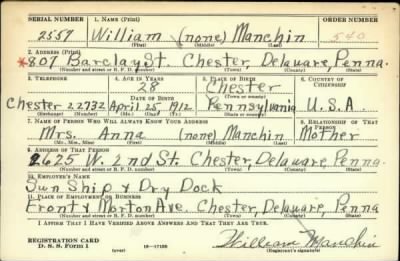 SERIAL NUMBER 1. NAME (Print) ORDER NUMBER
2557 William (none) Manchin 540
(First) (Middle) (Last)
2. ADDRESS (Print)
*807 Barclay St. Chester, Delaware, Penna.
(Number and street or R. F. D. number) (Town) (County) (State)
3. TELEPHONE 4. AGE IN YEARS 5. PLACE OF BIRTH 6. COUNTRY OF CITIZENSHIP
28 Chester
DATE OF BIRTH (Town or county)
Chester 22732 April 25, 1912 Pennsylvania U.S.A.
(Exchange) (No.) (Mo.) (Day) (Yr.) (State or country)
7. NAME OF PERSON WHO WILL ALWAYS KNOW YOUR ADDRESS 8. RELATIONSHIP OF THAT PERSON
Mrs. Anna (none) Manchin Mother
(Mr., Mrs., Miss) (First) (Middle) (Last)
9. ADDRESS OF THAT PERSON
2625 W. 2nd St. Chester, Delaware, Penna.
(Number and street or R. F. D. number) (Town) (County) (State)
10. EMPLOYER'S NAME
Sun Ship & Dry Dock
11. PLACE OF EMPLOYMENT OR BUSINESS
Front & Morton Ave. Chester, Delaware, Penna
(Number and street or R. F. D. number) (Town) (County) (State)
I AFFIRM THAT I HAVE VERIFIED ABOVE ANSWERS AND THAT THEY ARE TRUE.
REGISTRATION CARD
D. S. S. Form 1 (over) 16-17105 William Manchin
(Registrant's signature)